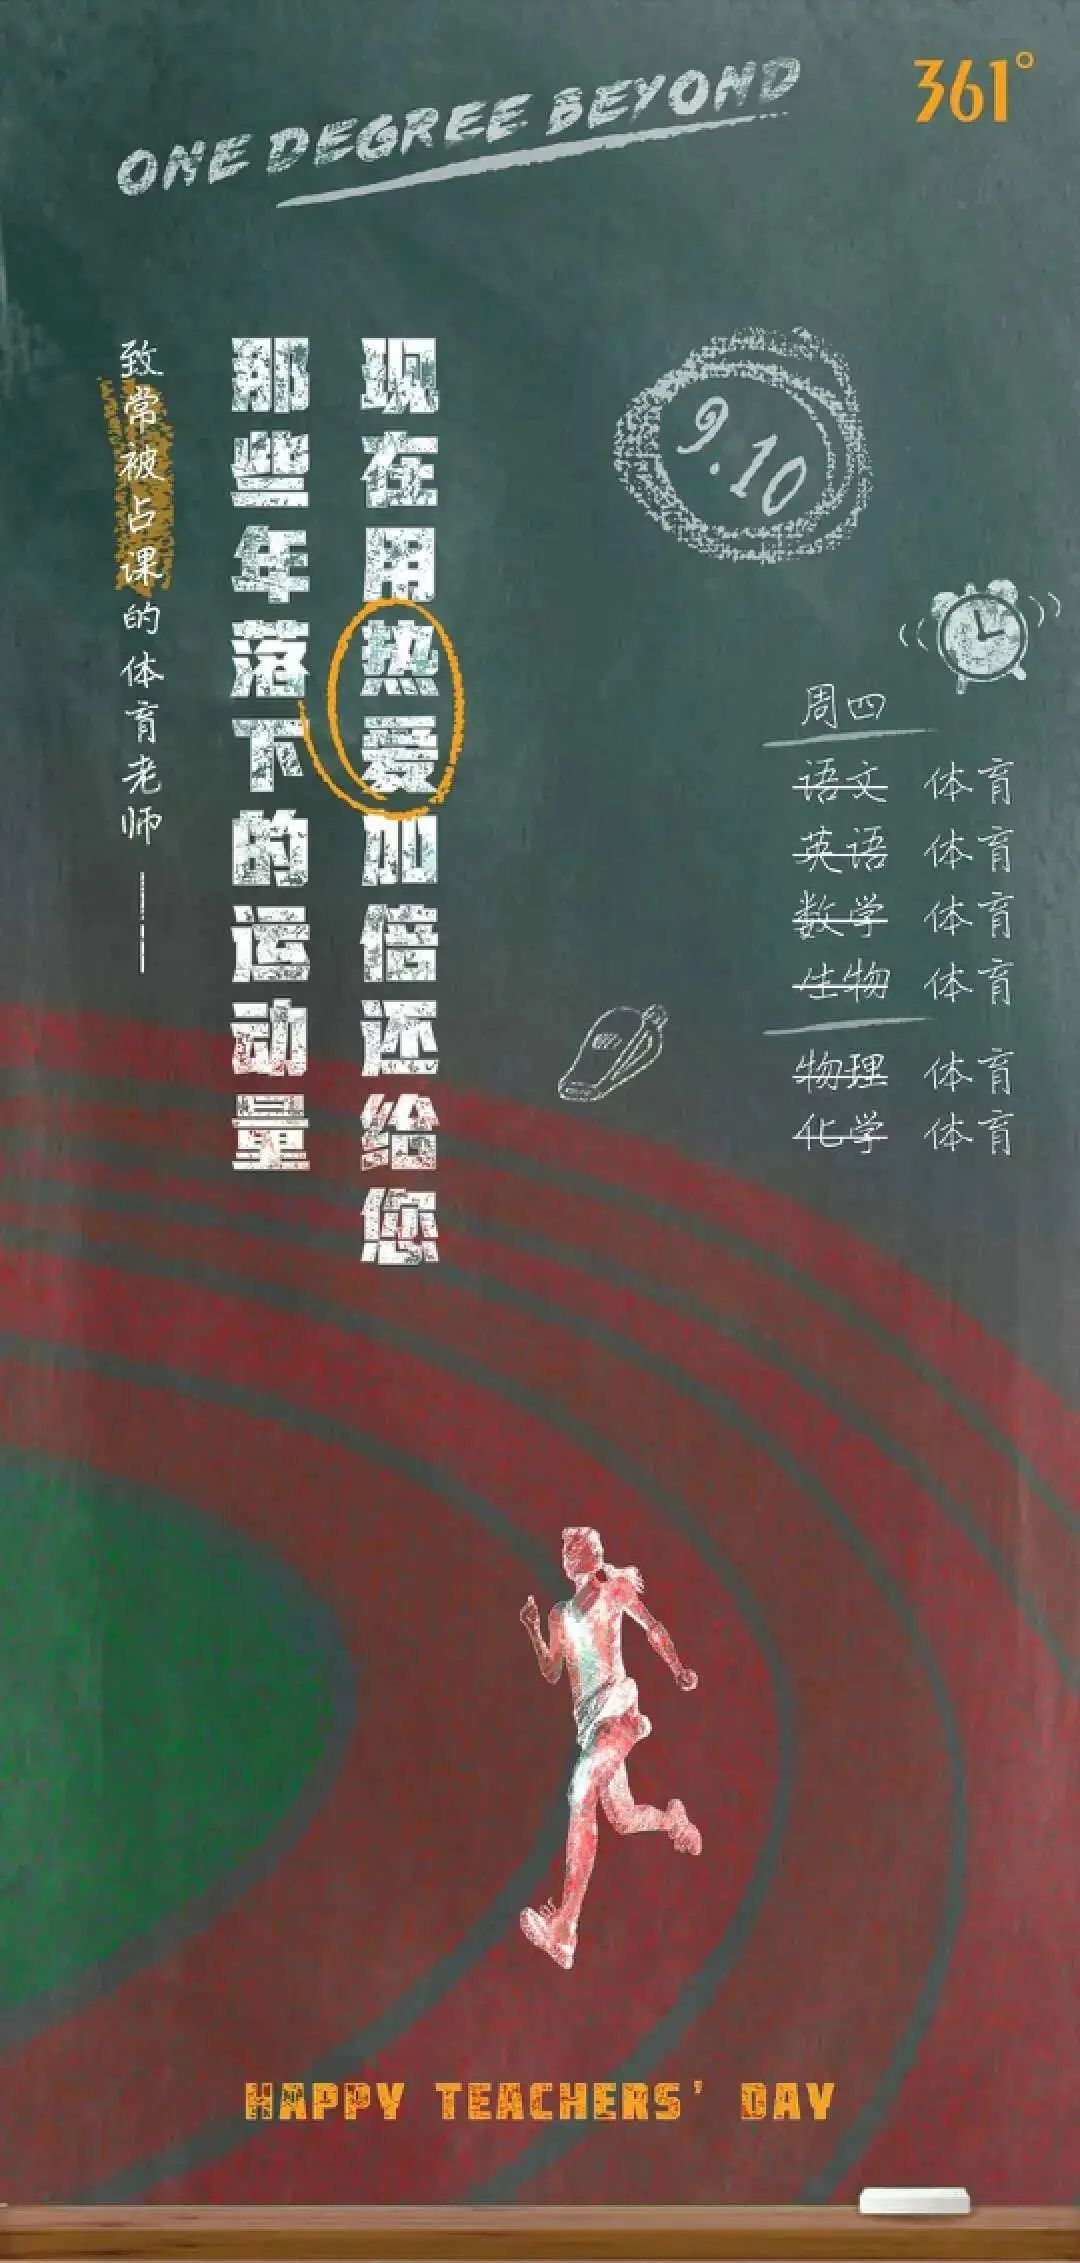 ONE DEGREE BEYOND
361°
致常被占课的体育老师——
那些年落下的运动量
现在用热爱加倍还给您
9.10
周四
语文 体育
英语 体育
数学 体育
生物 体育
物理 体育
化学 体育
HAPPY TEACHERS' DAY